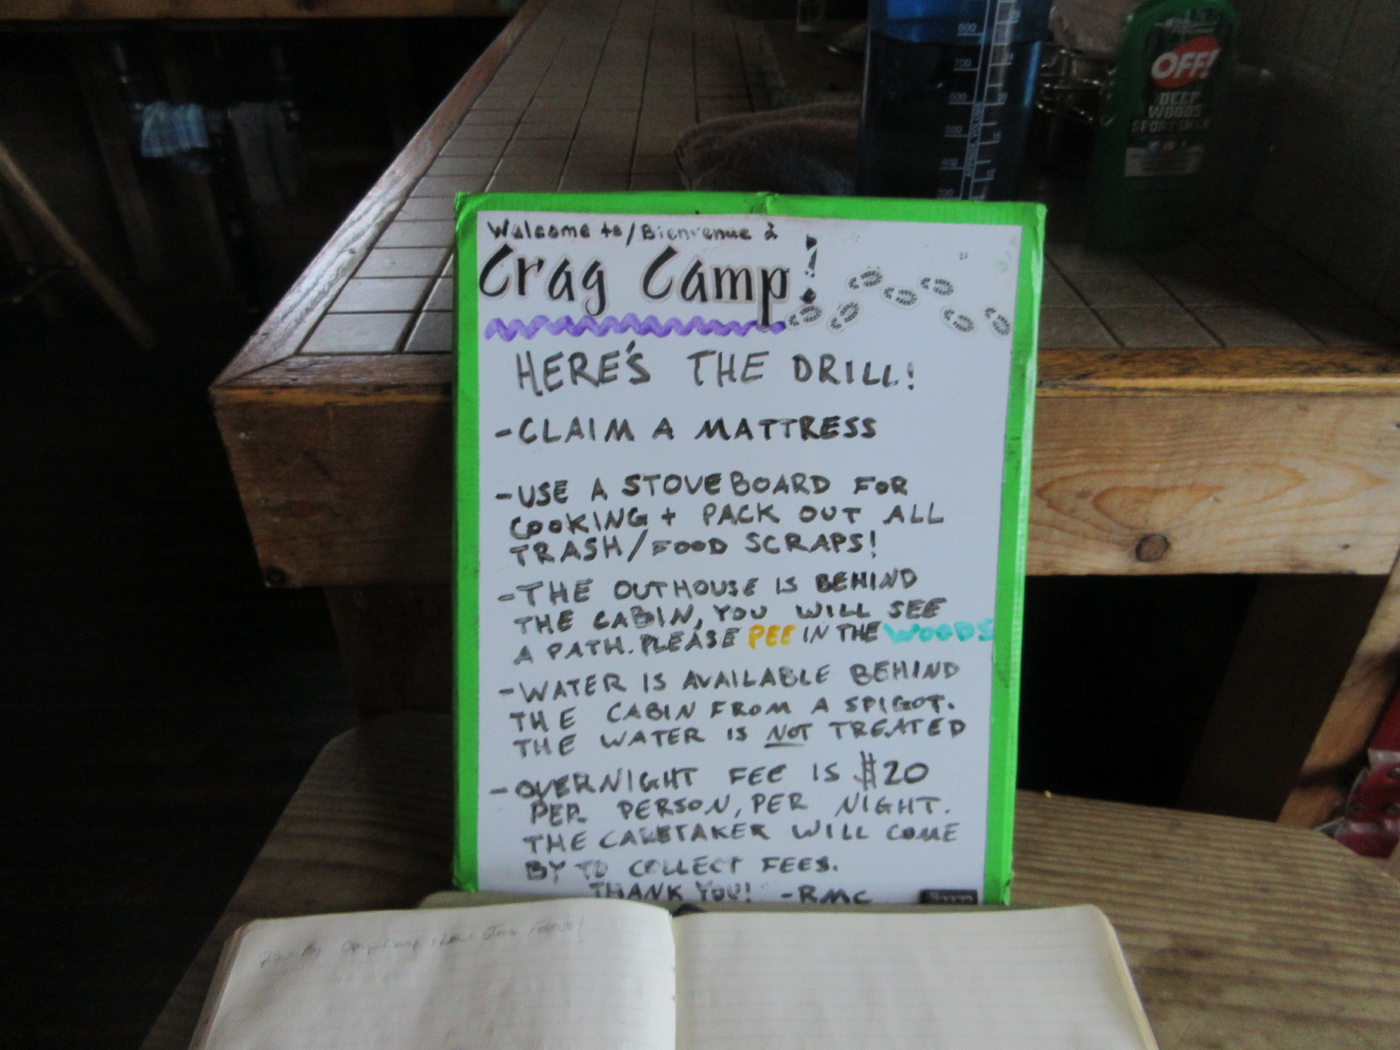 OFF!
DEEP
WOODS
SPORTSMEN
800
700
600
500
400
300
Welcome to/Bienvenue à
Crag Camp!
HERE'S THE DRILL!
-CLAIM A MATTRESS
-USE A STOVEBOARD FOR
COOKING + PACK OUT ALL
TRASH/FOOD SCRAPS!
-THE OUTHOUSE IS BEHIND
THE CABIN, YOU WILL SEE
A PATH. PLEASE PEE IN THE WOODS
-WATER IS AVAILABLE BEHIND
THE CABIN FROM A SPIGOT.
THE WATER IS NOT TREATED
-OVERNIGHT FEE IS $20
PER PERSON, PER NIGHT.
THE CARETAKER WILL COME
BY TO COLLECT FEES.
THANK YOU! -RMC